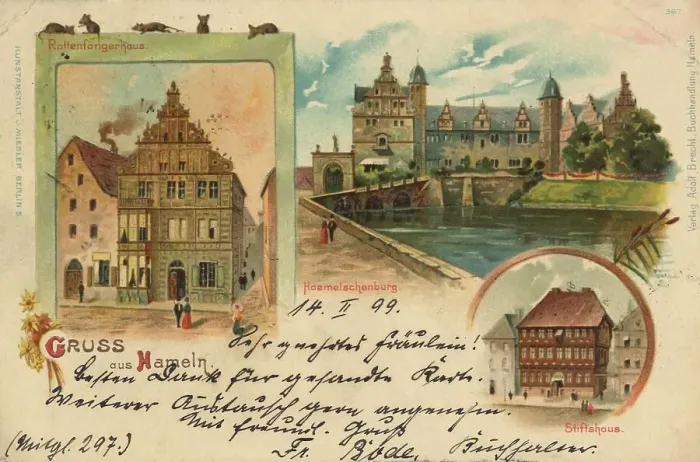 367
Rattenfängerhaus.
KUNSTANSTALT J. MIESLER, BERLIN S.
Verlag Adolf Brecht, Buchhandlung, Hameln.
Haemelschenburg
GRUSS
aus Hameln.
Stiftshaus.
14. II 99.
Sehr geehrtes Fräulein!
Besten Dank für gesandte Karte.
Weiterer Austausch gern angenehm.
Mit freundl. Gruß
(Mitgl. 297.)
Fr. Bode, Buchhalter.